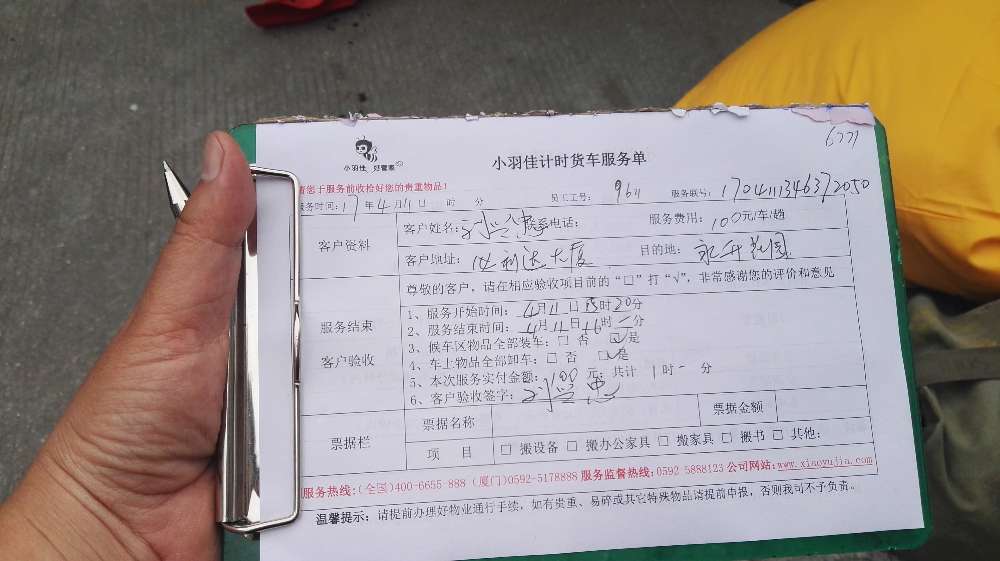 6771
小羽佳 好管家
小羽佳计时货车服务单
请您于服务前收拾好您的贵重物品!
服务时间: 17 年 4 月 11 日 时 分 员工工号: 9611 服务联号: 1704111346372050
客户资料 客户姓名: 联系电话: 服务费用: 100元/车/趟
客户地址: 必利达大厦 目的地: 永升花园
尊敬的客户, 请在相应验收项目前的“□”打“√”, 非常感谢您的评价和意见
服务结束 客户验收
1、服务开始时间: 4月11日15时20分
2、服务结束时间: 4月11日16时 分
3、候车区物品全部装车: □ 否 ☑是
4、车上物品全部卸车: □ 否 ☑是
5、本次服务实付金额: 100 元; 共计 1 时 - 分
6、客户验收签字:
票据栏 票据名称 票据金额
项 目 □ 搬设备 □ 搬办公家具 □ 搬家具 □ 搬书 □ 其他:
服务热线:(全国)400-6655-888 (厦门)0592-5178888 服务监督热线:0592-5888123 公司网站:www.xiaoyujia.com
温馨提示: 请提前办理好物业通行手续, 如有贵重、易碎或其它特殊物品请提前申报, 否则我司不予负责。